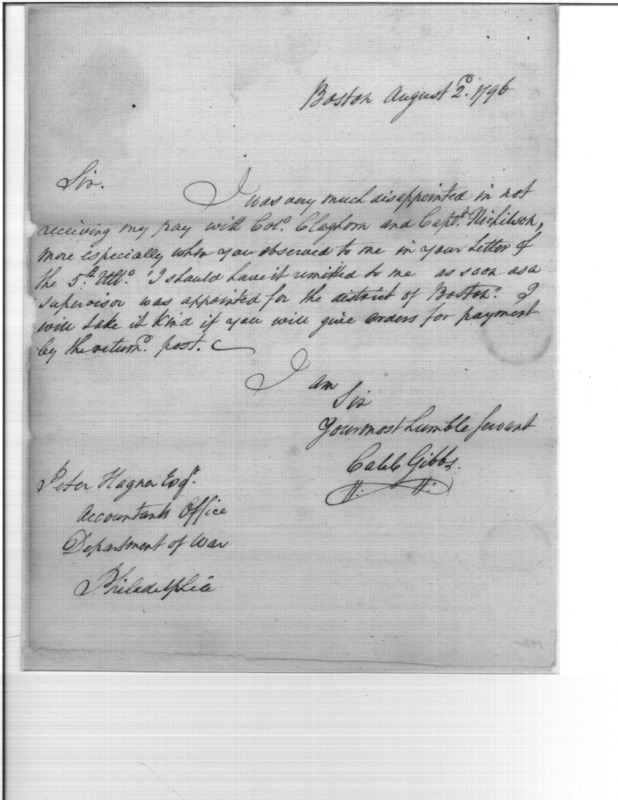 Boston August 2d. 1796
Sir. I was very much disappointed in not
receiving my pay with Colo. Claghorn and Captn. Nichilson,
more especially when you observed to me in your Letter of
the 5th. Ulto. I should have it remitted to me as soon as a
Supervisor was appointed for the district of Boston. I
will take it kind if you will give orders for payment
by the return. post.
I am
Sir
Your most humble Servant
Caleb Gibbs.
Peter Hagner Esqr.
Accountants Office
Department of War
Philadelphia